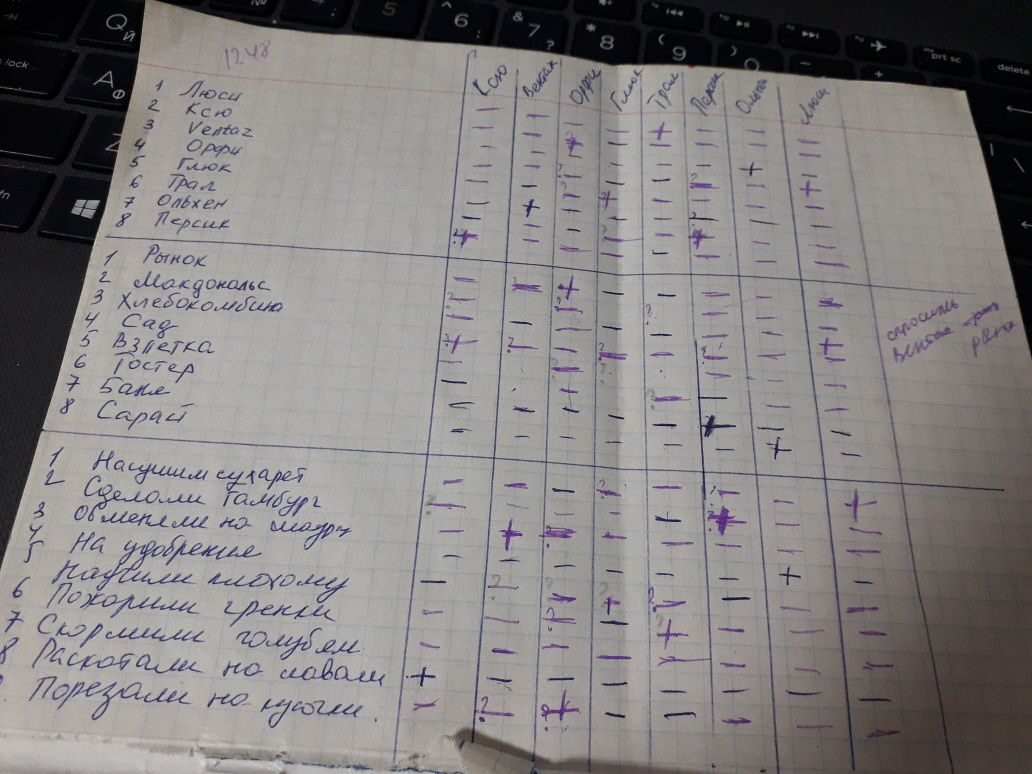 1248
Ксю Вентаz Орфи Глюк Трал Персик Ольхен Люси
1 Люси
2 Ксю
3 Ventaz
4 Орфи
5 Глюк
6 Трал
7 Ольхен
8 Персик
1 Рынок
2 Макдональс
3 Хлебокомбина
4 Сад
5 Взлетка
6 Тостер
7 Баня
8 Сарай
спросить
рынок
1 Насушим сухарей
2 Сделали Гамбург
3 Обменяли на
4 На удобрение
5 Научили плохому
6 Пожарили гренки
7 Скормили голубям
8 Раскатали на лаваш
Порезали на кусочки.